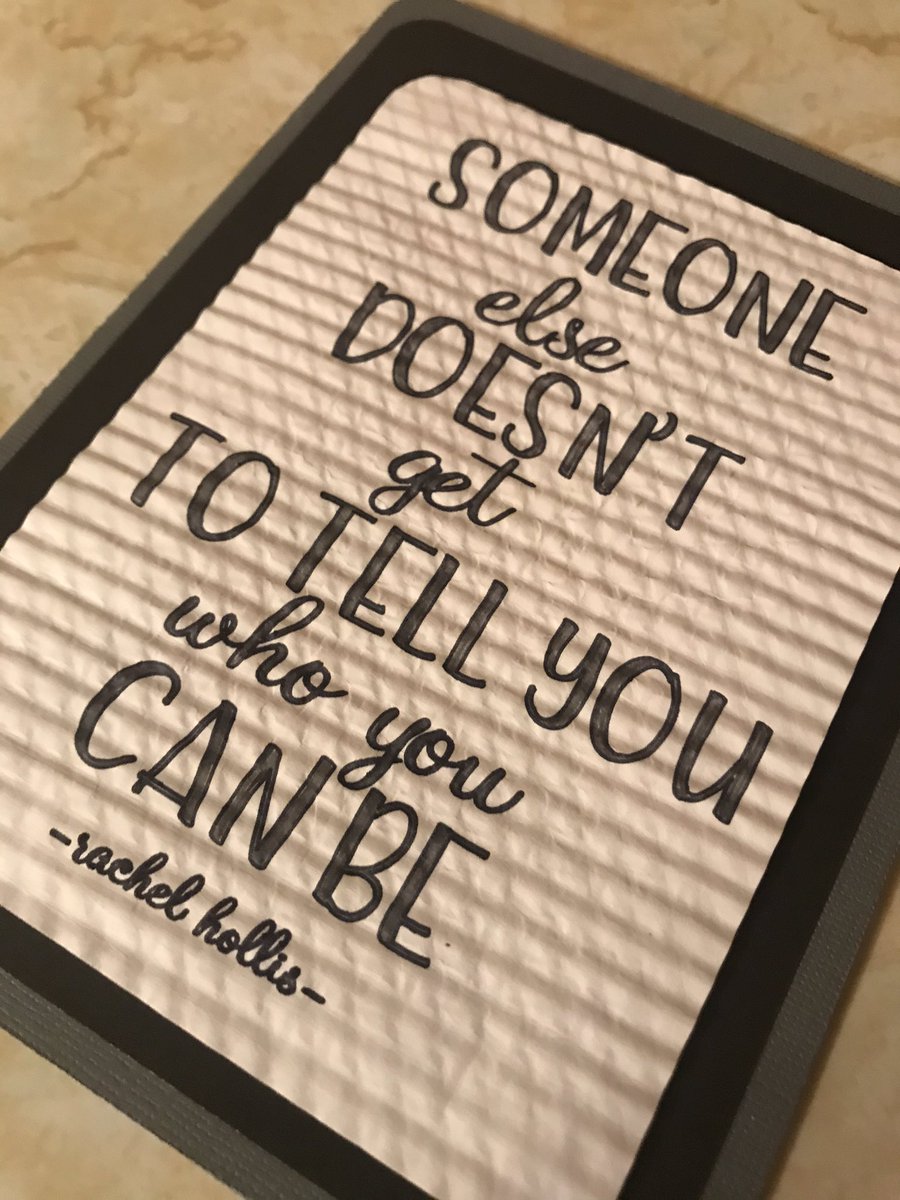 SOMEONE
else
DOESN'T
get
TO TELL YOU
who you
CAN BE
-rachel hollis-